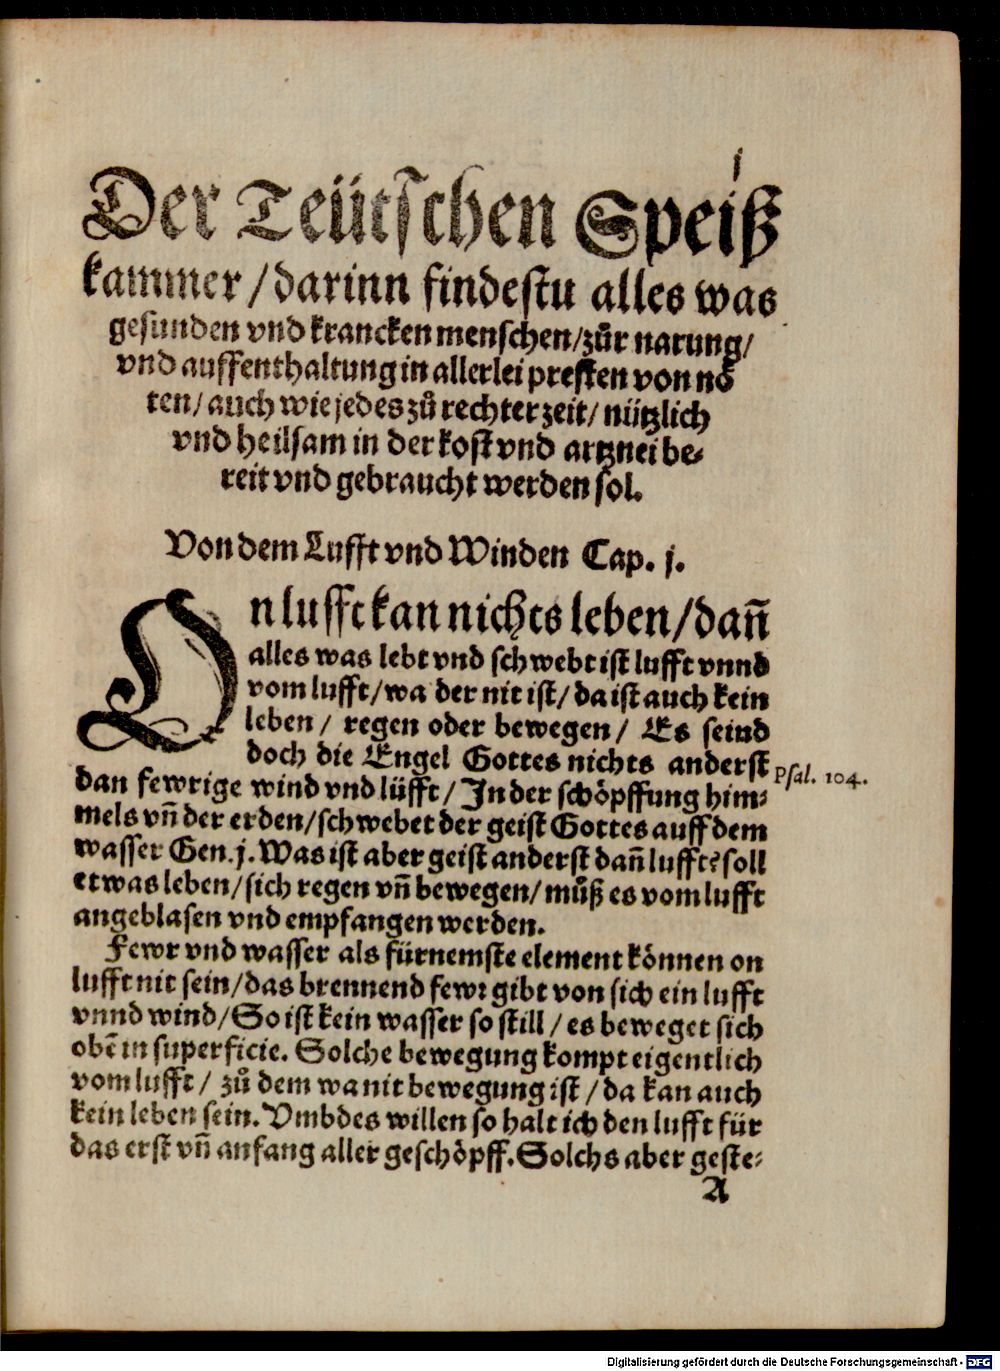 j
Der Teütschen Speiß
kammer / darinn findestu alles was
gesunden vnd krancken menschen / zůr narung /
vnd auffenthaltung in allerlei presten von nö
ten / auch wie jedes zů rechter zeit / nützlich
vnd heilsam in der kost vnd artznei be⸗
reit vnd gebraucht werden sol.
Von dem Lufft vnd Winden Cap. j.
On lufft kan nichts leben / dañ
alles was lebt vnd schwebt ist lufft vnnd
vom lufft / wa der nit ist / da ist auch kein
leben / regen oder bewegen / Es seind
doch die Engel Gottes nichts anderst
dan fewrige wind vnd lüfft / In der schöpffung him⸗ Psal. 104.
mels vñ der erden / schwebet der geist Gottes auff dem
wasser Gen. j. Was ist aber geist anderst dañ lufft? soll
etwas leben / sich regen vñ bewegen / můß es vom lufft
angeblasen vnd empfangen werden.
Fewr vnd wasser als fürnemste element können on
lufft nit sein / das brennend fewr gibt von sich ein lufft
vnnd wind / So ist kein wasser so still / es beweget sich
obẽ in superficie. Solche bewegung kompt eigentlich
vom lufft / zů dem wa nit bewegung ist / da kan auch
kein leben sein. Vmb des willen so halt ich den lufft für
das erst vñ anfang aller geschöpff. Solchs aber geste⸗
A
Digitalisierung gefördert durch die Deutsche Forschungsgemeinschaft - DFG